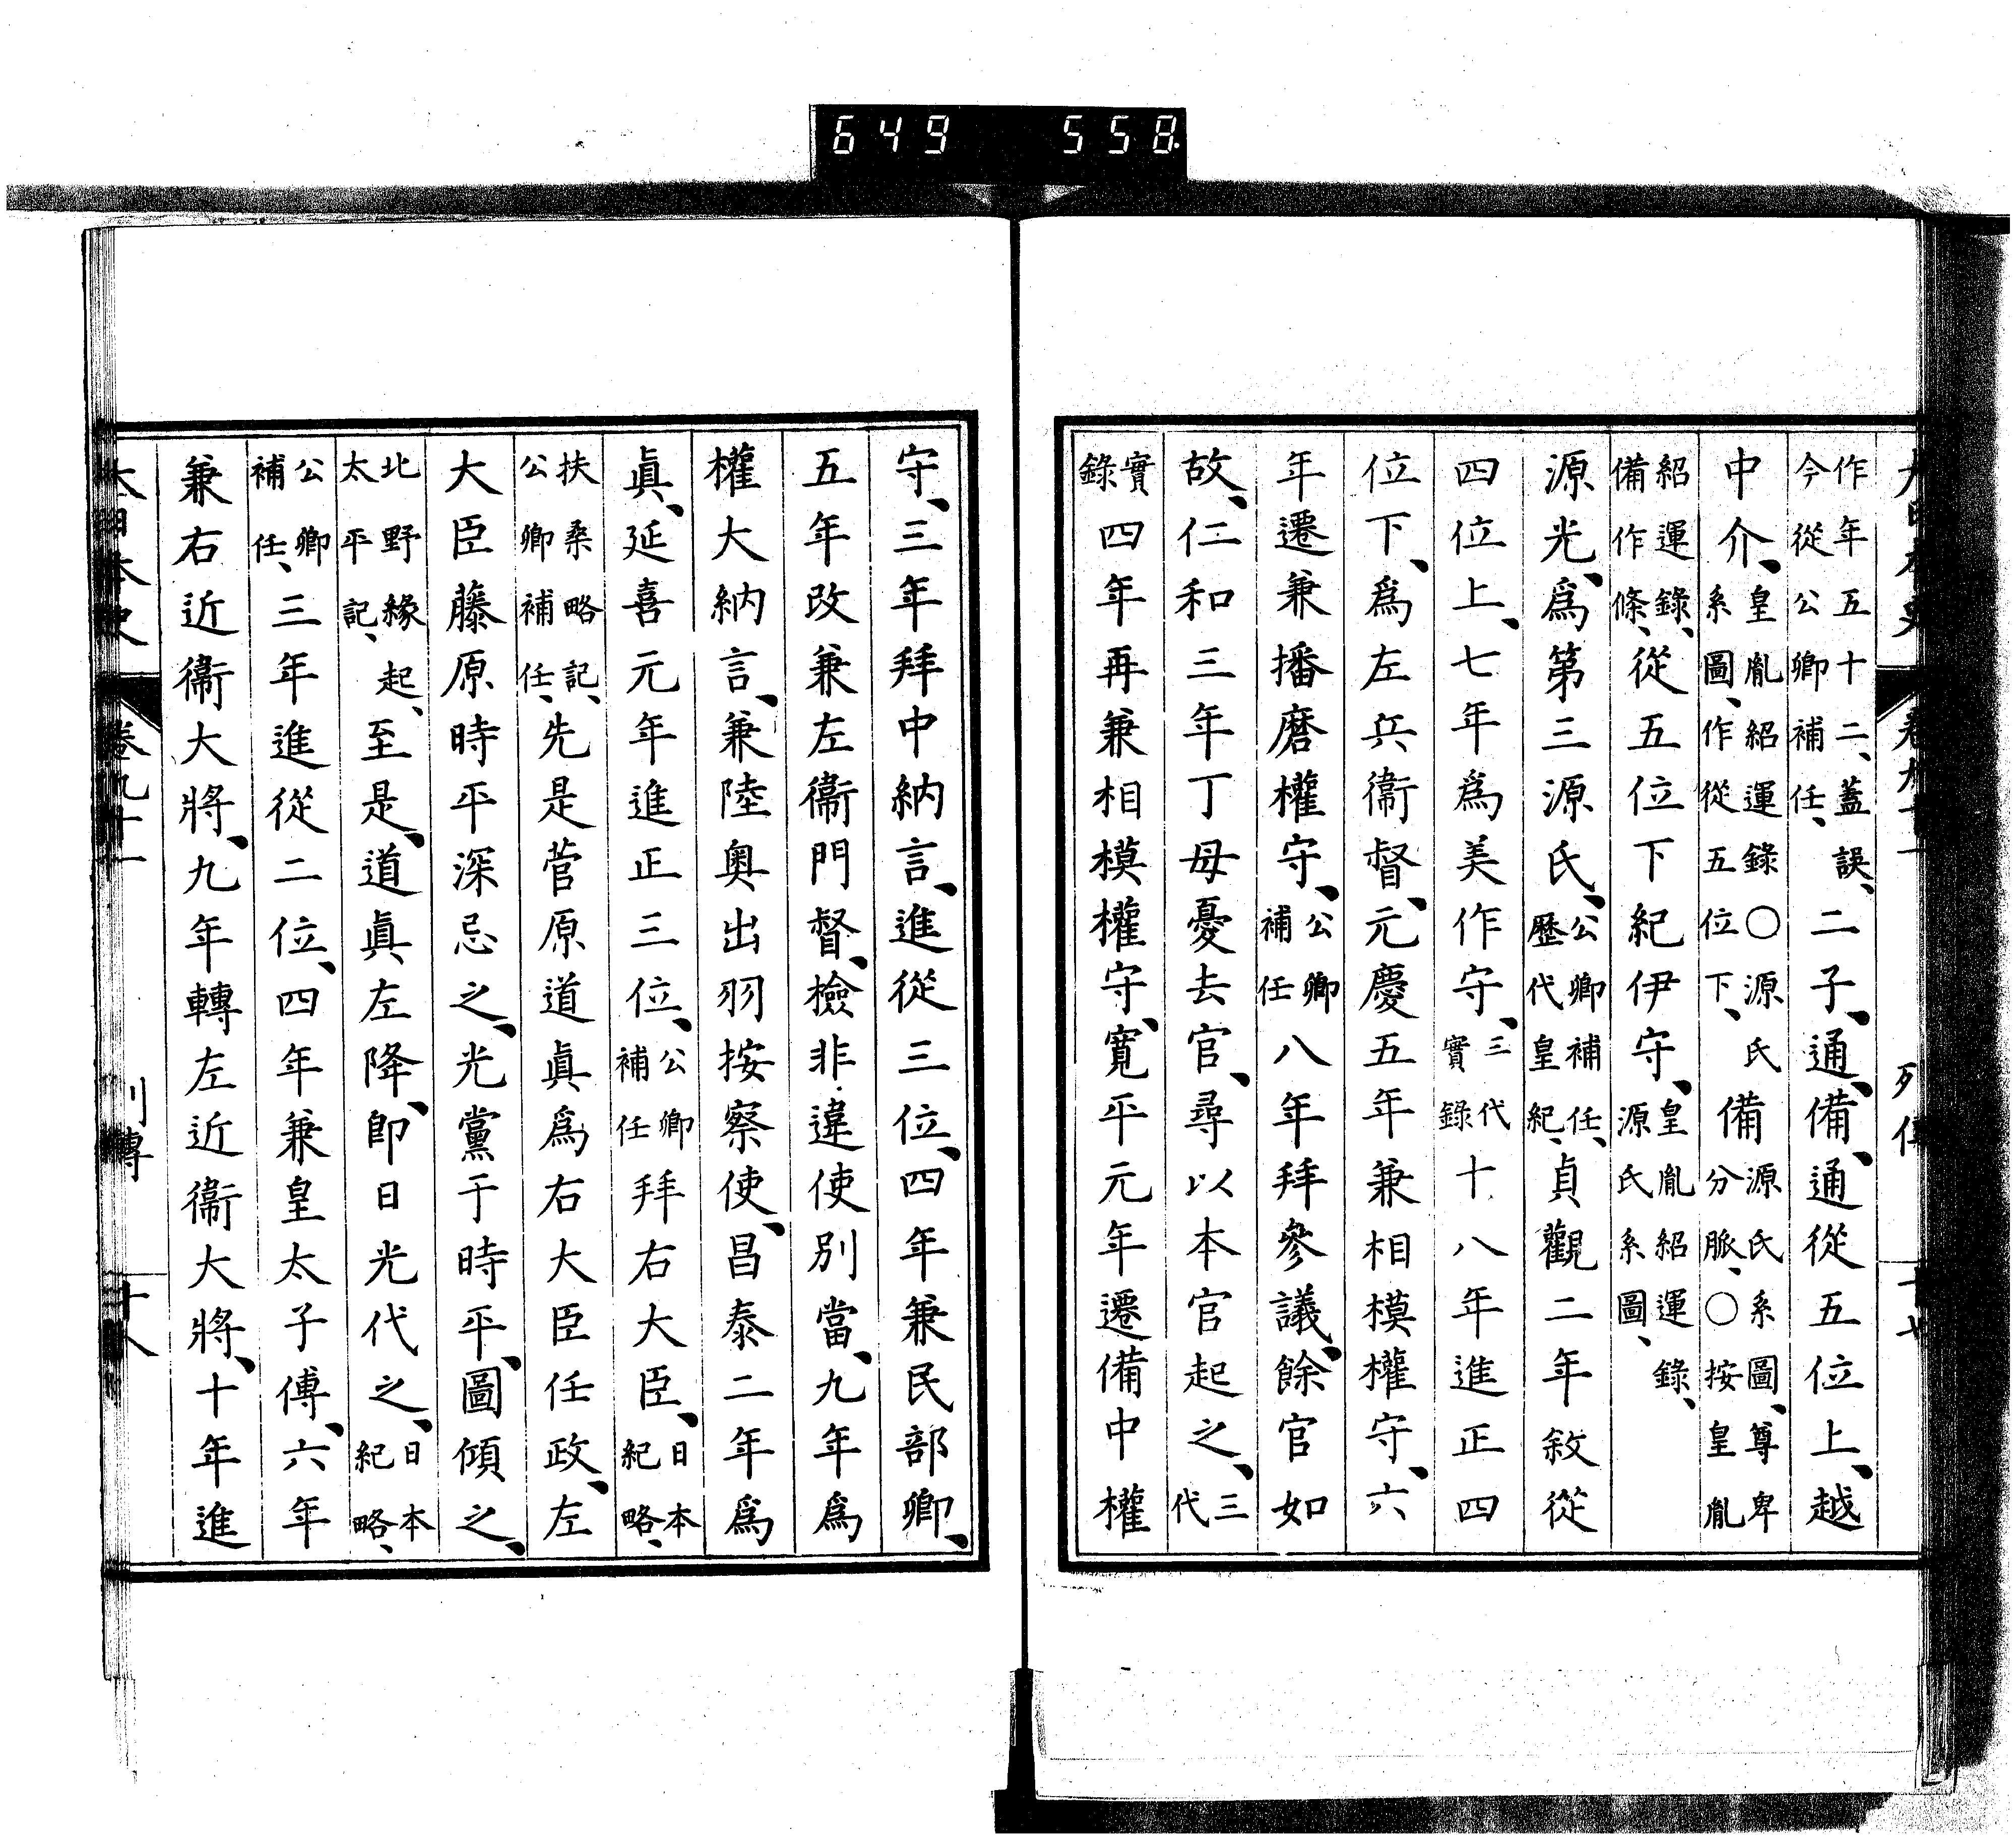 649 558
大日本史 卷九十一 列傳 十七
作年五十二、蓋誤、今從公卿補任、二子、通、備、通從五位上、越
中介、皇胤紹運錄○源氏系圖、作從五位下、備源氏系圖、尊卑分脈、○按皇胤
紹運錄、備作條、從五位下紀伊守、皇胤紹運錄、源氏系圖、
源光、爲第三源氏、公卿補任、歷代皇紀、貞觀二年敘從
四位上、七年爲美作守、三代實錄十八年進正四
位下、爲左兵衞督、元慶五年兼相模權守、六
年遷兼播磨權守、公卿補任八年拜參議、餘官如
故、仁和三年丁母憂去官、尋以本官起之、三代
實錄四年再兼相模權守、寬平元年遷備中權
守、三年拜中納言、進從三位、四年兼民部卿、
五年改兼左衞門督、檢非違使別當、九年爲
權大納言、兼陸奥出羽按察使、昌泰二年爲
眞、延喜元年進正三位、公卿補任拜右大臣、日本紀略、
扶桑略記、公卿補任、先是菅原道眞爲右大臣任政、左
大臣藤原時平深忌之、光黨于時平、圖傾之、
北野緣起、太平記、至是、道眞左降、卽日光代之、日本紀略、
公卿補任、三年進從二位、四年兼皇太子傅、六年
兼右近衞大將、九年轉左近衞大將、十年進
大日本史 卷九十一 列傳 十八